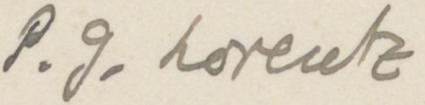 P. g. Lorentz